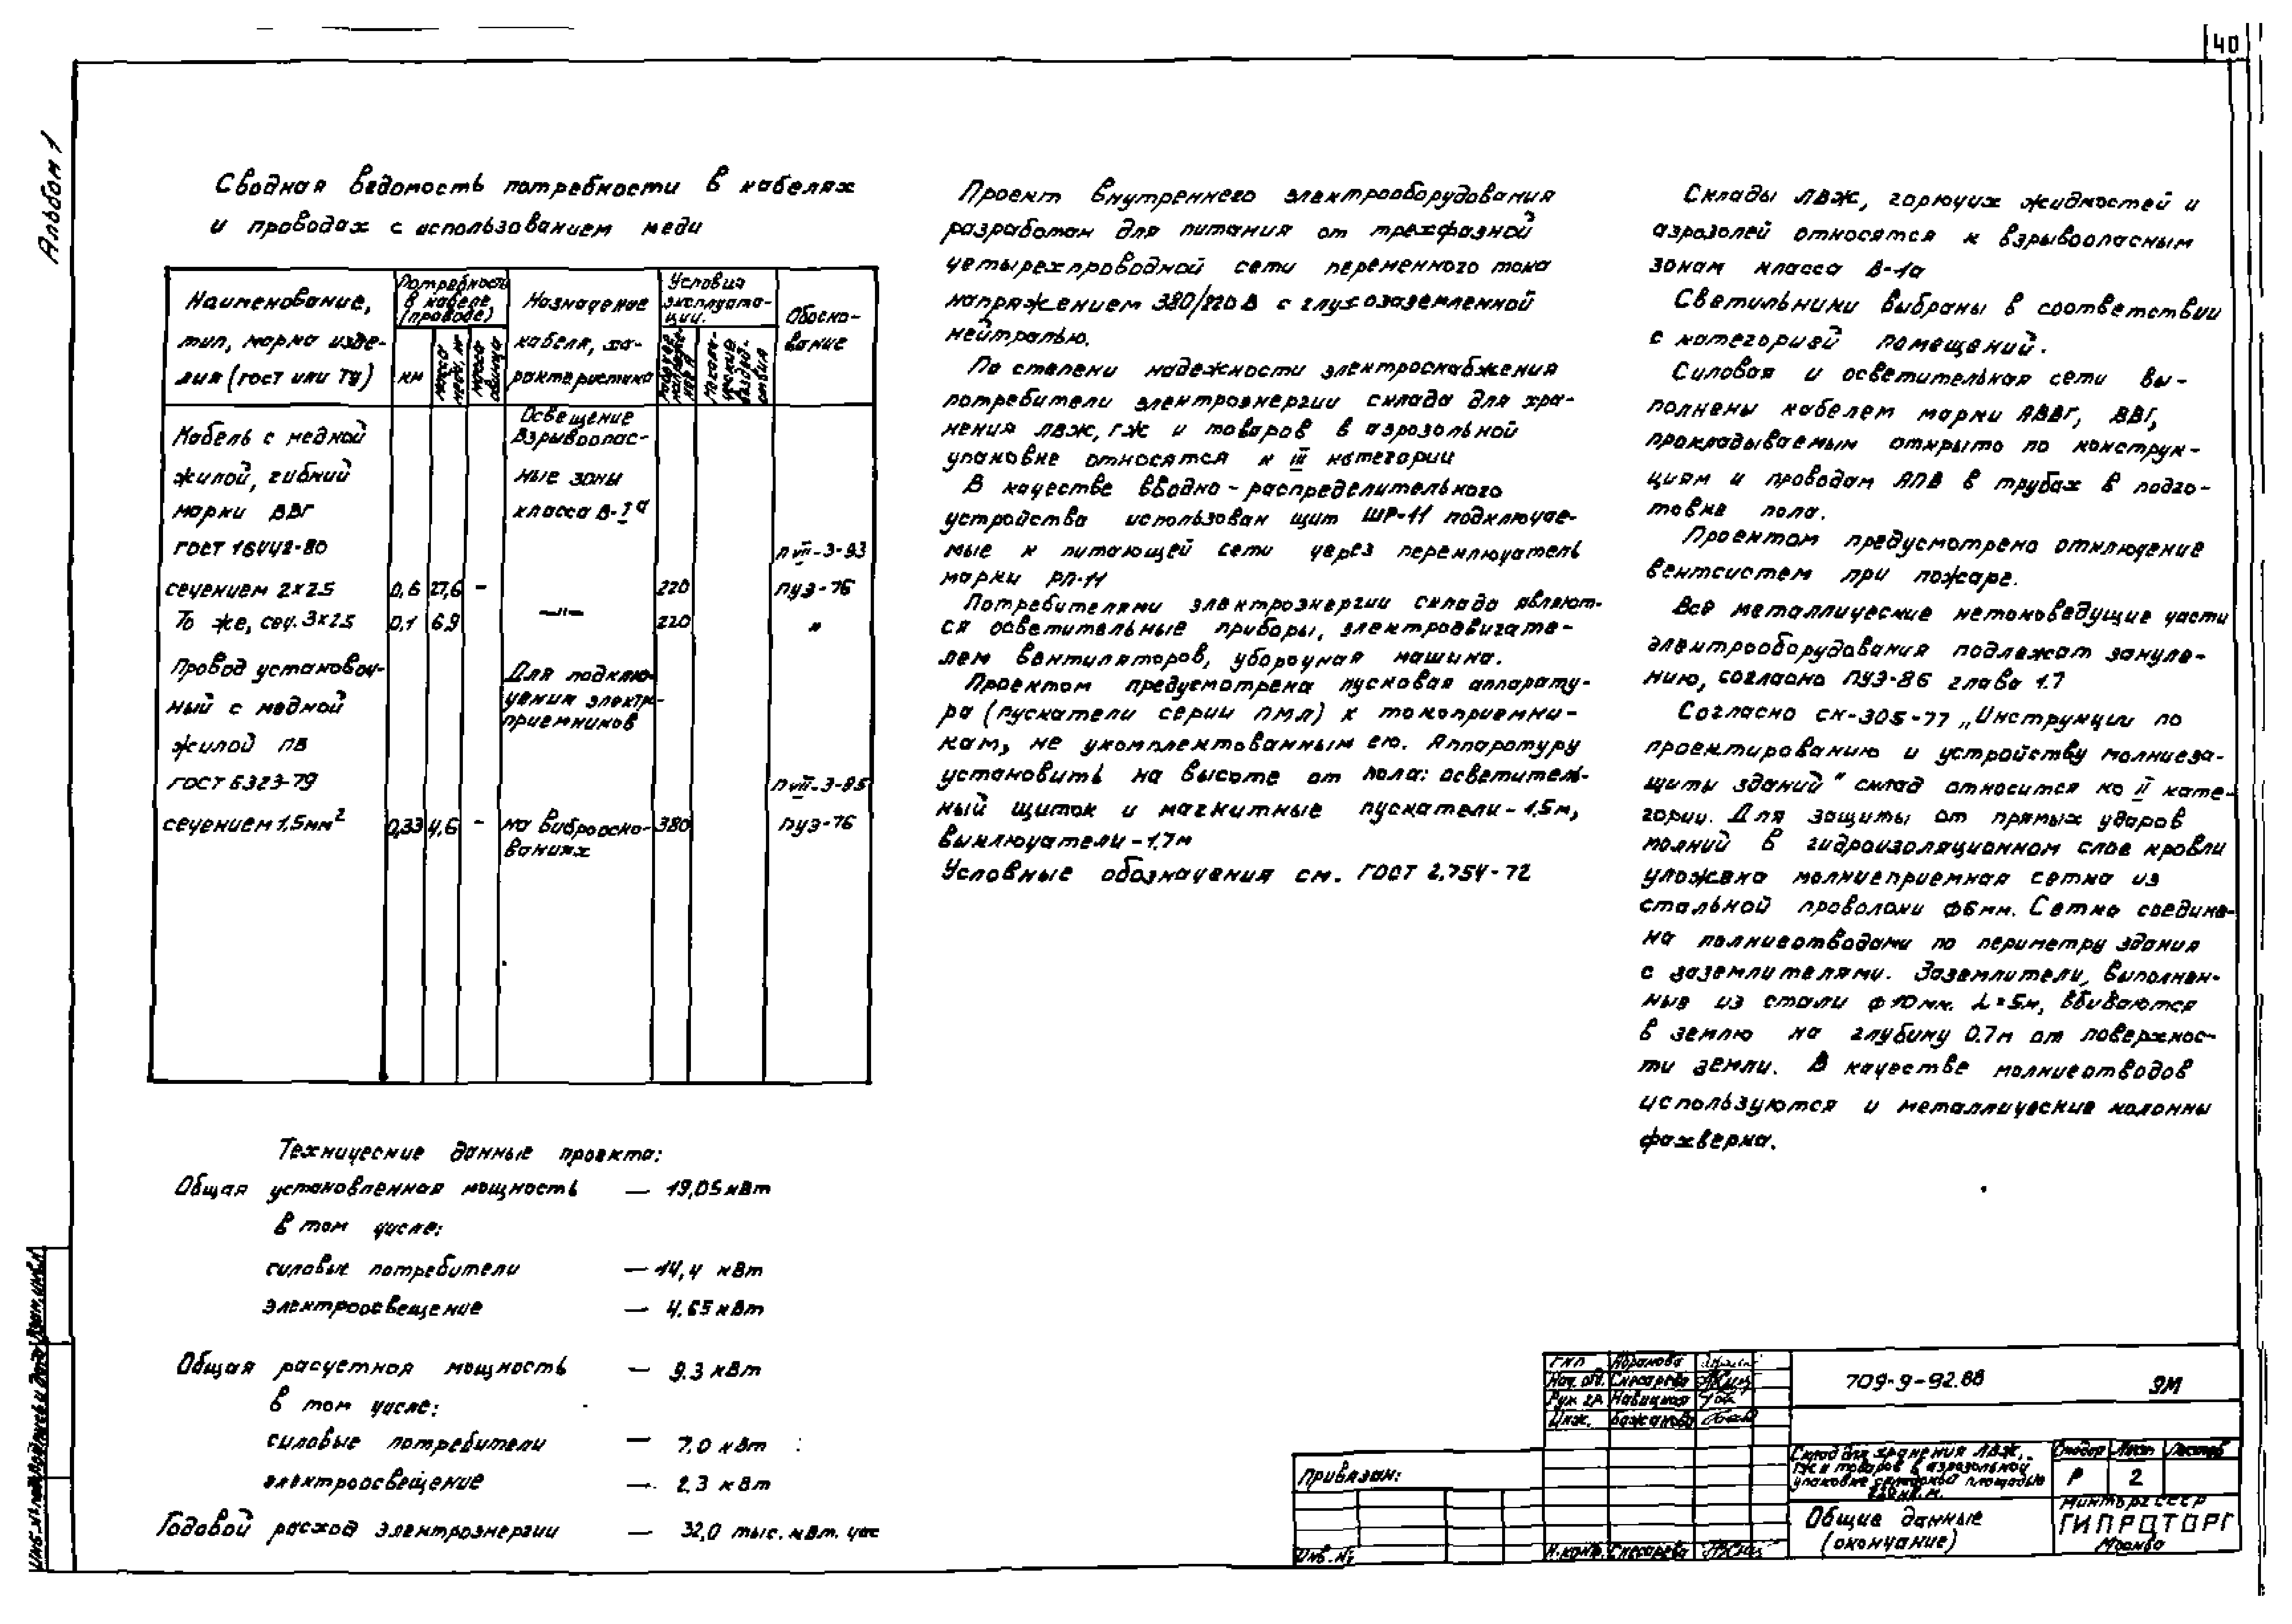 40
Альбом 1
Сводная ведомость потребности в кабелях
и проводах с использованием меди
Наименование,
тип, марка изде-
лия (гост или ТУ)
Потребность
в кабеле,
(проводе)
км
масса
меди, кг
масса
свинца
Назначение
кабеля, ха-
рактеристика
Условия
эксплуата-
ции.
Обосно-
вание
Кабель с медной
жилой, гибкий
марки ВВГ
ГОСТ 16442-80
Освещение
взрывоопас-
ные зоны
класса В-Iа
п VII-3-93
сечением 2х2.5 0,6 27,6 – 220 ПУЭ-76
То же, сеч. 3х2.5 0,1 6.9 —"— 220 "
Провод установоч-
ный с медной
жилой ПВ
ГОСТ 6323-79
Для подклю-
чения электр-
приемников
п VII-3-85
сечением 1,5мм² 0,33 4,6 – на виброосно-
ваниях 380 ПУЭ-76
Технические данные проекта:
Общая установленная мощность — 19,05 кВт
в том числе:
силовые потребители — 14,4 кВт
электроосвещение — 4.65 кВт
Общая расчетная мощность — 9.3 кВт
в том числе:
силовые потребители — 7.0 кВт
электроосвещение — 2,3 кВт
Годовой расход электроэнергии — 32,0 тыс. кВт. час
Проект внутреннего электрооборудования
разработан для питания от трехфазной
четырехпроводной сети переменного тока
напряжением 380/220 В с глухозаземленной
нейтралью.
По степени надежности электроснабжения
потребители электроэнергии склада для хра-
нения ЛВЖ, ГЖ и товаров в аэрозольной
упаковке относятся к III категории
В качестве вводно-распределительного
устройства использован щит ШР-11 подключае-
мые к питающей сети через переключатель
марки РП-11
Потребителями электроэнергии склада являют-
ся осветительные приборы, электродвигате-
лем вентиляторов, уборочная машина.
Проектом предусмотрена пусковая аппарату-
ра (пускатели серии ПМЛ) к токоприемни-
кам, не укомплектованным ею. Аппаратуру
установить на высоте от пола: осветитель-
ный щиток и магнитные пускатели-1,5м,
выключатели-1.7м
Условные обозначения см. ГОСТ 2.754-72
Склады ЛВЖ, горючих жидкостей и
аэрозолей относятся к взрывоопасным
зонам класса В-1а
Светильники выбраны в соответствии
с категорией помещений.
Силовая и осветительная сети вы-
полнены кабелем марки АВВГ, ВВГ,
прокладываемым открыто по конструк-
циям и проводам АПВ в трубах в подго-
товке пола.
Проектом предусмотрено отключение
вентсистем при пожаре.
Все металлические нетоковедущие части
электрооборудования подлежат зануле-
нию, согласно ПУЭ-86 глава 1.7
Согласно СН-305-77 „Инструкции по
проектированию и устройству молниеза-
щиты зданий" склад относится ко II кате-
гории. Для защиты от прямых ударов
молний в гидроизоляционном слое кровли
уложена молниеприемная сетка из
стальной проволоки ф6мм. Сетка соедине-
на молниеотводами по периметру здания
с заземлителями. Заземлители, выполнен-
ные из стали ф10мм. L=5м, вбиваются
в землю на глубину 0.7м от поверхнос-
ти земли. В качестве молниеотводов
используются и металлические колонны
фахверка.
ГИП Абрамова
Нач. отд. Слесарева
Рук. гр. Навицкая
Инж. Бажанова
Н. конт. Слесарева
Привязан:
Инв. №
709-9-92.88 ЭМ
Склад для хранения ЛВЖ,
ГЖ и товаров в аэрозольной
упаковке складской площадью
Стадия Лист Листов
Р 2
Общие данные
(окончание)
Минторг СССР
ГИПРОТОРГ
Москва
Инв. № подл. Подпись и дата Взам. инв. №